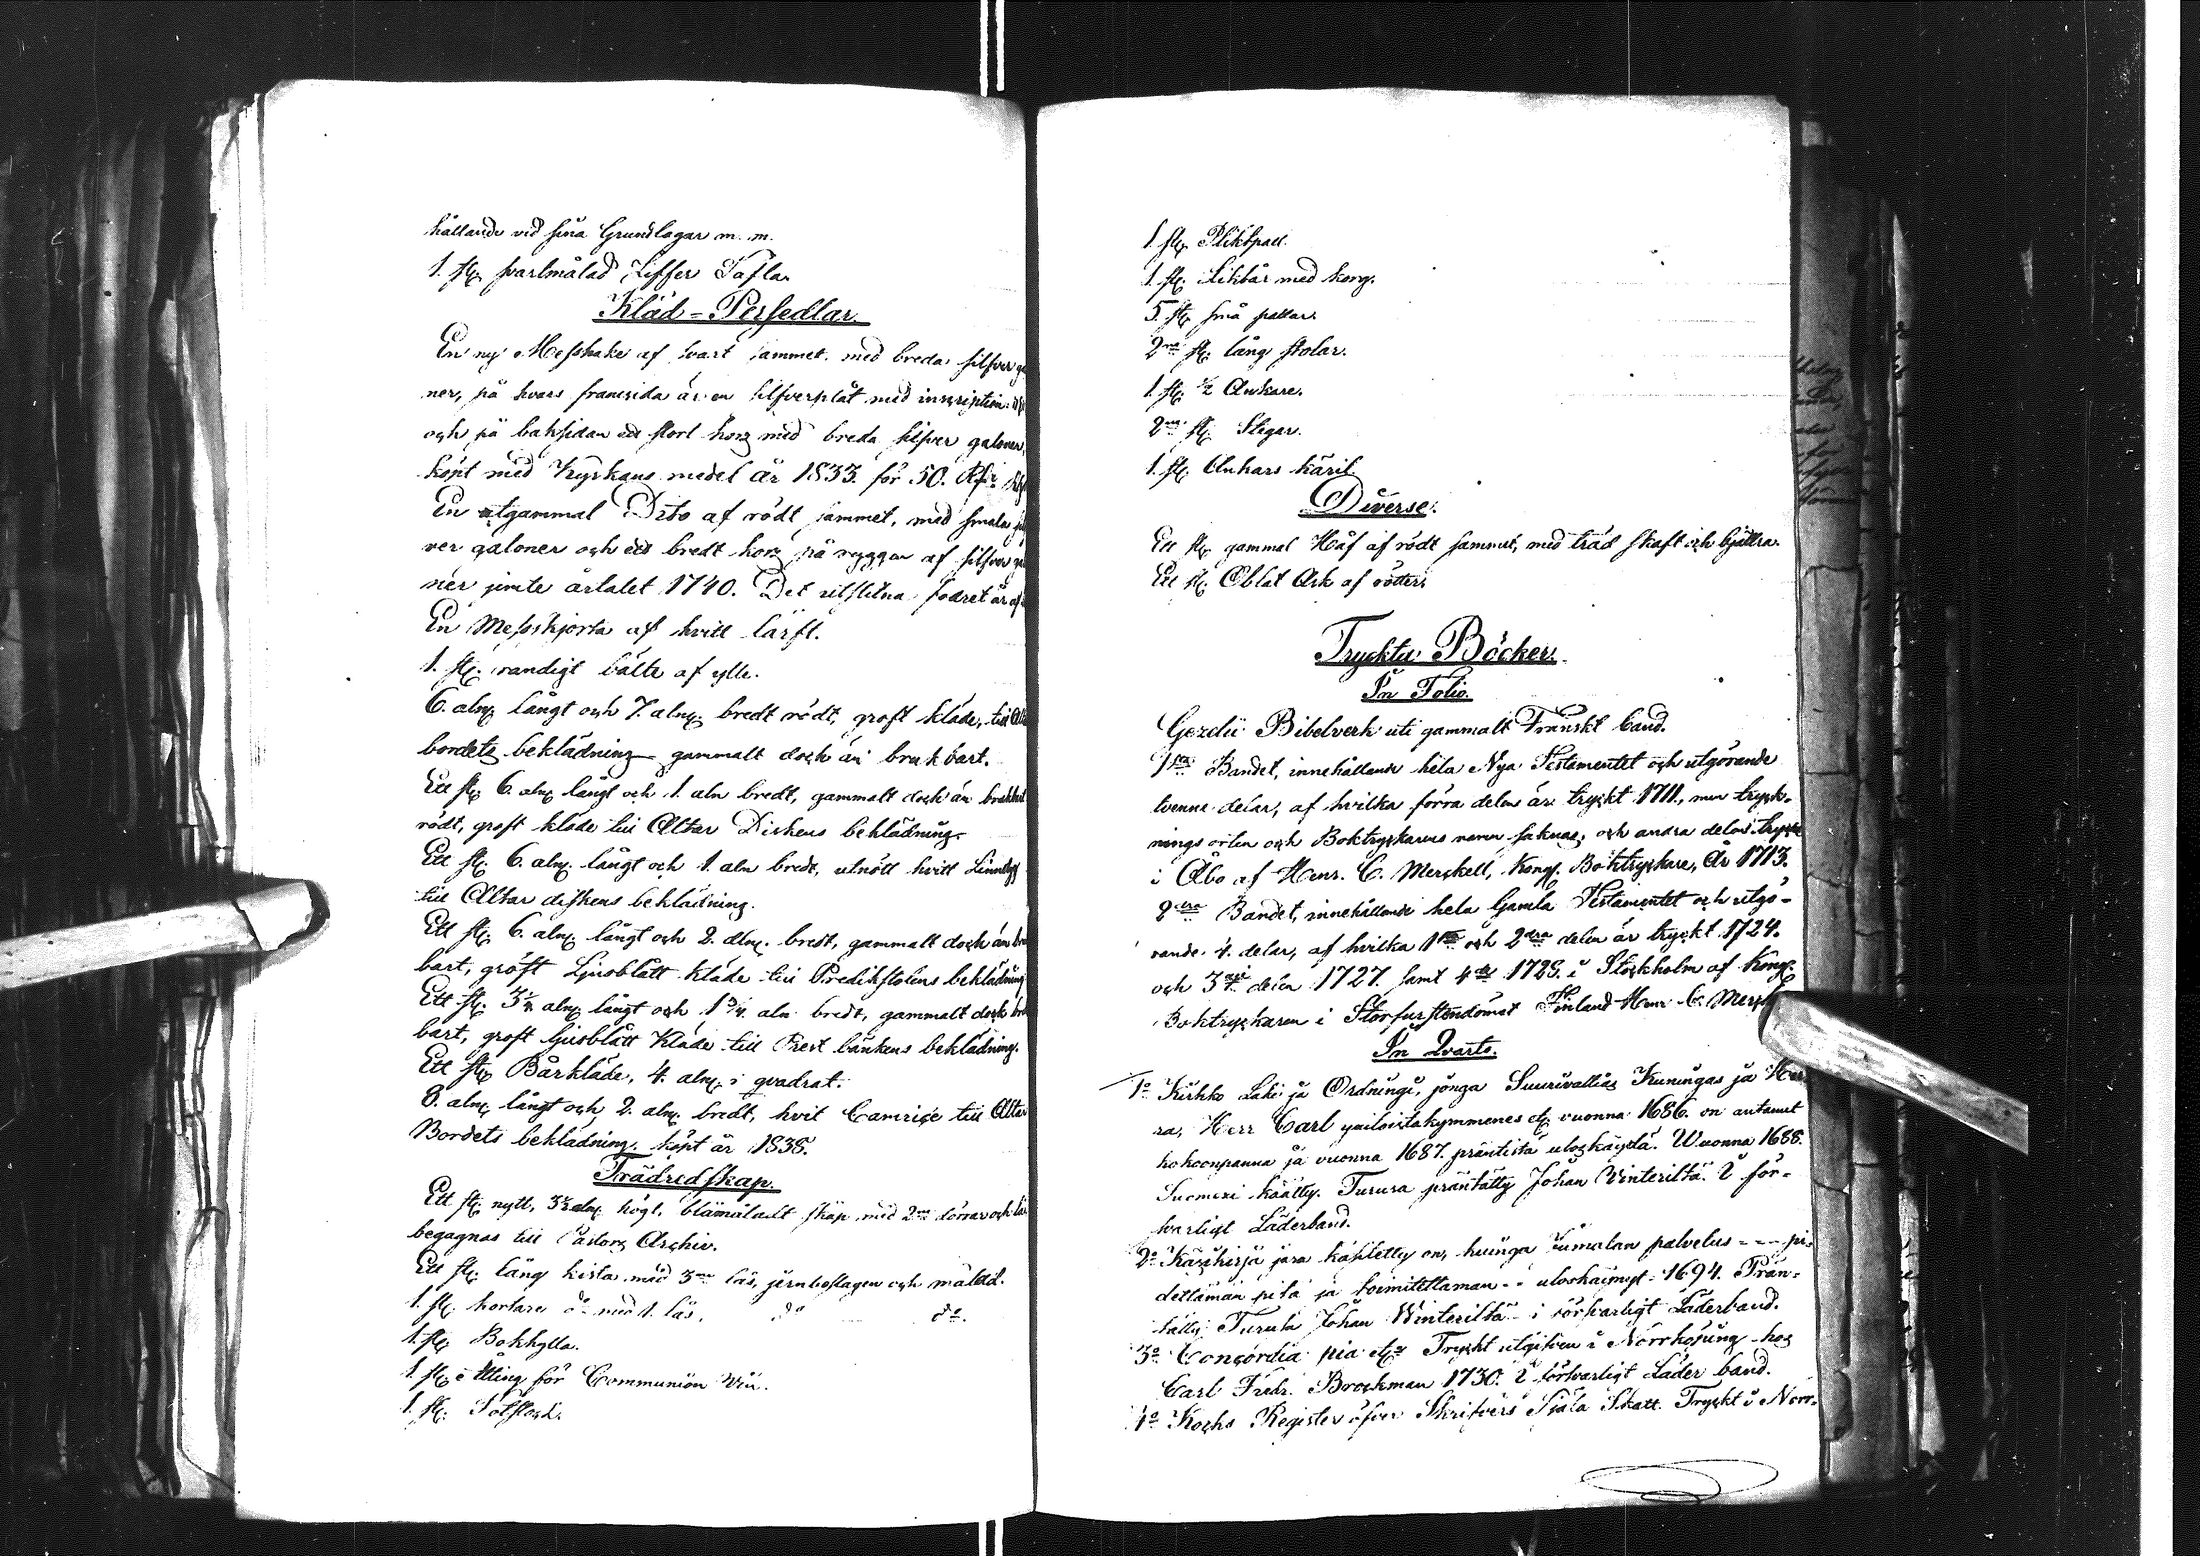 hållande vid sina Grundlagar m. m.
1. st. svartmålad Ziffer Tafla.
Kläd-Persedlar.
En ny Messhake af svart sammet. med breda silfver ga
ner, på hvars framsida är en silfverplåt med inscription:
och på baksidan ett stort kors med breda silfver galoner,
köpt med Kyrkans medel år 1833. för 50. R
En utgammal Dito af rödt sammet, med smala
ver galoner och ett bredt kors på ryggen af silfver ga
ner jemte årtalet 1740. Det utslitna fodret är af
En Messskjorta af hvitt lärft.
1. st. randigt bälte af ylle.
6. alnr långt och 7. alnr bredt rödt, groft kläde, till Alt
bordets beklädning gammalt dock än brukbart.
Ett st. 6. alnr långt och 1. aln bredt, gammalt dock än brukbart
rödt, groft kläde till Altar Diskens beklädning.
Ett st. 6. alnr långt och 1. aln bredt, utnött hvitt Linntyg
till Altar diskens beklädning.
Ett st. 6. alnr långt och 2. alnr. bredt, gammalt dock än bru
bart, gröft Ljusblått kläde till Predikstolens beklädning
Ett st. 3 alnr långt och 1 3/4. aln bredt, gammalt dock bru
bart, groft ljusblått Kläde till Prest bänkens beklädning.
Ett st. Bårkläde, 4. alnr i qvadrat.
8. alnr långt och 2. alnr. bredt, hvit Camrige till Altar
Bordets beklädning. köpt år 1838.
Trädredskap.
Ett st. nytt, 3½ alnr högt, blåmåladt skåp med 2ne dörrar och lås
begagnas till Pastors Archiv.
Ett st. lång kista med 3ne lås, jernbeslagen och målad.
1. st. kortare do med 1. lås, do do.
1. st. Bokhylla.
1. st. Åtting för Communion Vin.
1. st. Sotstock.
1. st. Pliktpall.
1. st. Likbår med korg.
5. st. små pallar.
2ne st. lång stolar.
1. st. ½ Ankare.
2ne st. Stegar.
1. st. Ankars käril
Diverse.
Ett st. gammal Håf af rödt sammet, med träd skaft och bjällra.
Ett st. Oblat Ask af rötter.
Tryckta Böcker.
In Folio.
Gezelii Bibelverk uti gammalt Franskt band.
1sta Bandet, innehållande hela Nya Testamentet och utgörande
tvenne delar, af hvilka förra delen är tryckt 1711, men tryck-
nings orten och Boktryckarens namn saknas, och andra delen tryckt
i Åbo af Henr. C. Merckell, Kongl. Boktryckare, År 1713.
2dra Bandet, innehållande hela Gamla Testamentet och utgö-
rande 4. delar, af hvilka 1sta och 2dra delen är tryckt 1724.
och 3dje delen 1727. samt 4de 1728. i Stockholm af Kongl.
Boktryckaren i Storfurstendömet Finland Henr C. Merck
In Qvarto.
1o Kirkko Laki ja Ordningi, jonga Suurivaltias Kuningas ja Her
ra, Herr Carl yxiloistakymmenes etc vuonna 1686. on antanut
kokoonpanna ja vuonna 1687. präntistä uloskäydä. Wuonna 1688.
Suomexi käätty. Turusa präntätty Johan Winterildä. I för-
svarligt Läderband.
2o Käsikirja josa käsitetty on, kuinga Jumalan palvelus --- pi-
dettämän pitä ja toimitettaman -- uloskäynyt 1694. Prän-
tätty Turusa Johan Winterildä i försvarligt Läderband.
3o Concordia pia etc Tryckt utgifven i Norrköping hos
Carl Fredr. Brockman 1730. I försvarligt Läder band.
4o Kochs Register öfver Skrifvers Själa Skatt. Tryckt i Norr-